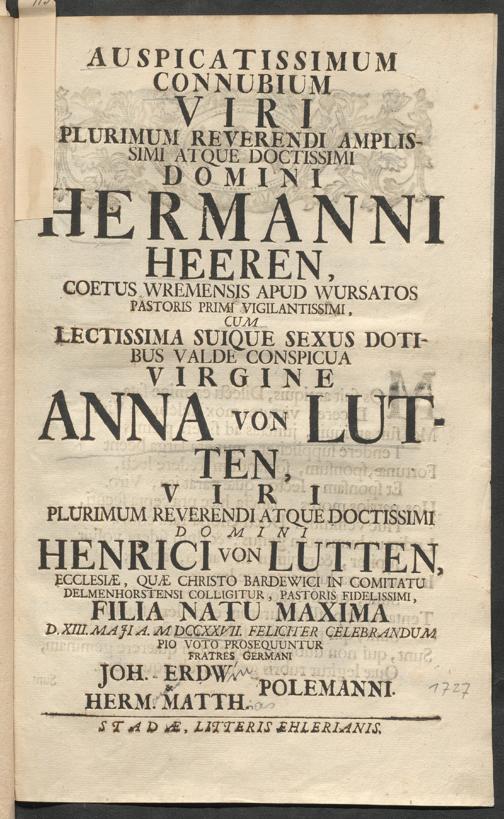 AUSPICATISSIMUM
CONNUBIUM
VIRI
PLURIMUM REVERENDI AMPLIS-
SIMI ATQUE DOCTISSIMI
DOMINI
HERMANNI
HEEREN,
COETUS WREMENSIS APUD WURSATOS
PASTORIS PRIMI VIGILANTISSIMI,
CUM
LECTISSIMA SUIQUE SEXUS DOTI-
BUS VALDE CONSPICUA
VIRGINE
ANNA VON LUT-
TEN,
VIRI
PLURIMUM REVERENDI ATQUE DOCTISSIMI
DOMINI
HENRICI VON LUTTEN,
ECCLESIÆ, QUÆ CHRISTO BARDEWICI IN COMITATU
DELMENHORSTENSI COLLIGITUR, PASTORIS FIDELISSIMI,
FILIA NATU MAXIMA
D. XIII. MAJI A. M DCCXXVII. FELICITER CELEBRANDUM
PIO VOTO PROSEQUUNTUR
FRATRES GERMANI
JOH. ERDWin
POLEMANNI.
HERM. MATTH.as
1727
STADÆ, LITTERIS EHLERIANIS.